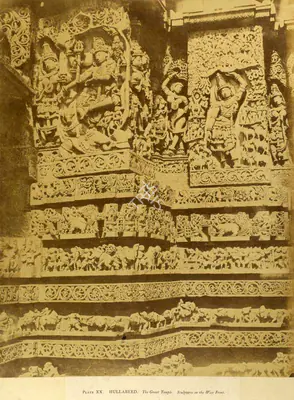 PLATE XX. HULLABEED. The Great Temple. Sculpture on the West Front.